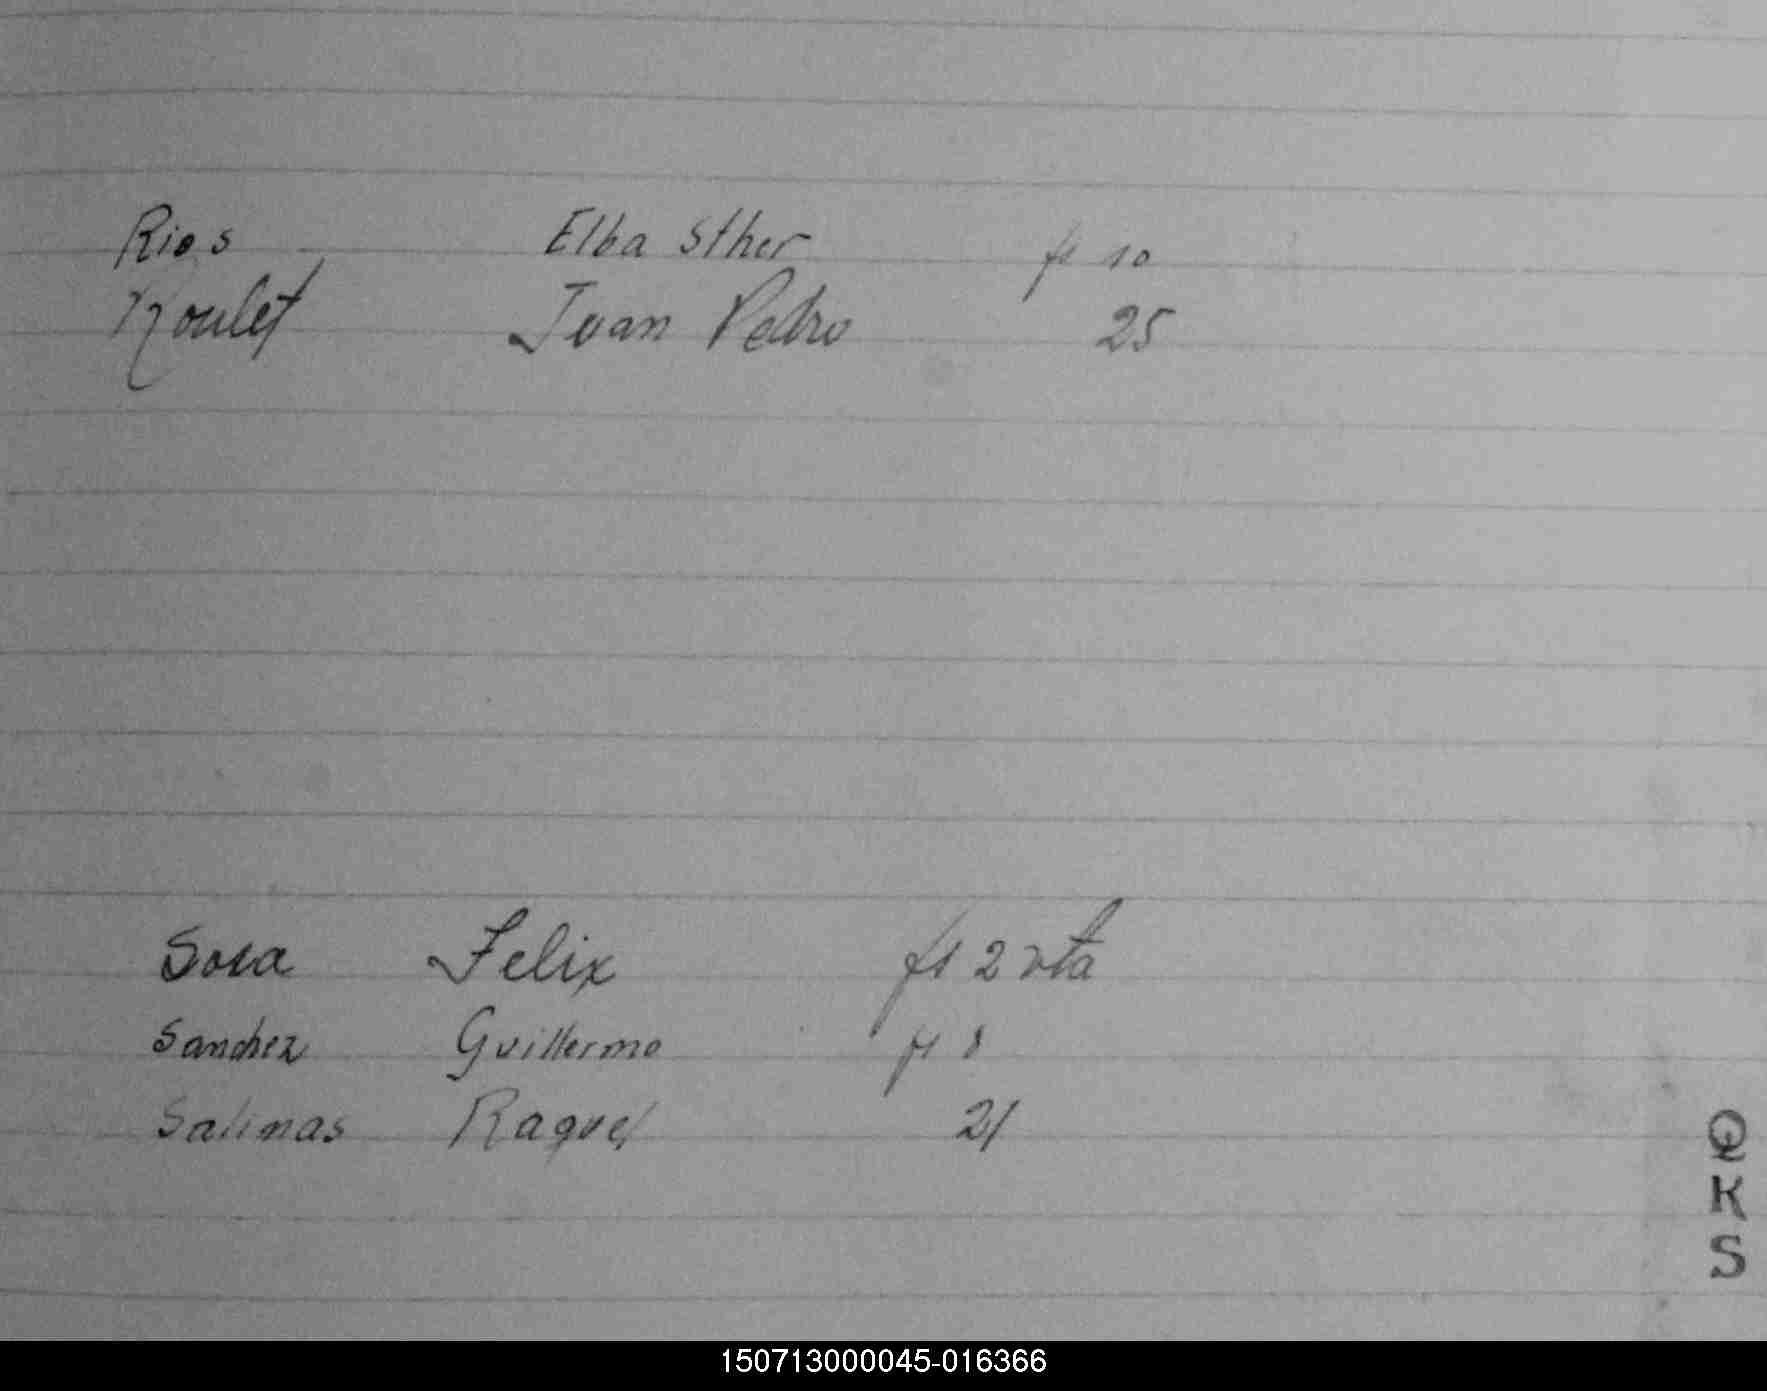 Rios Elba Sther fs 10
Roulet Juan Pedro 25
Sosa Felix fs 2 vta
Sanchez Guillermo fs 8
Salinas Raquel 21
Q
K
S
150713000045-016366